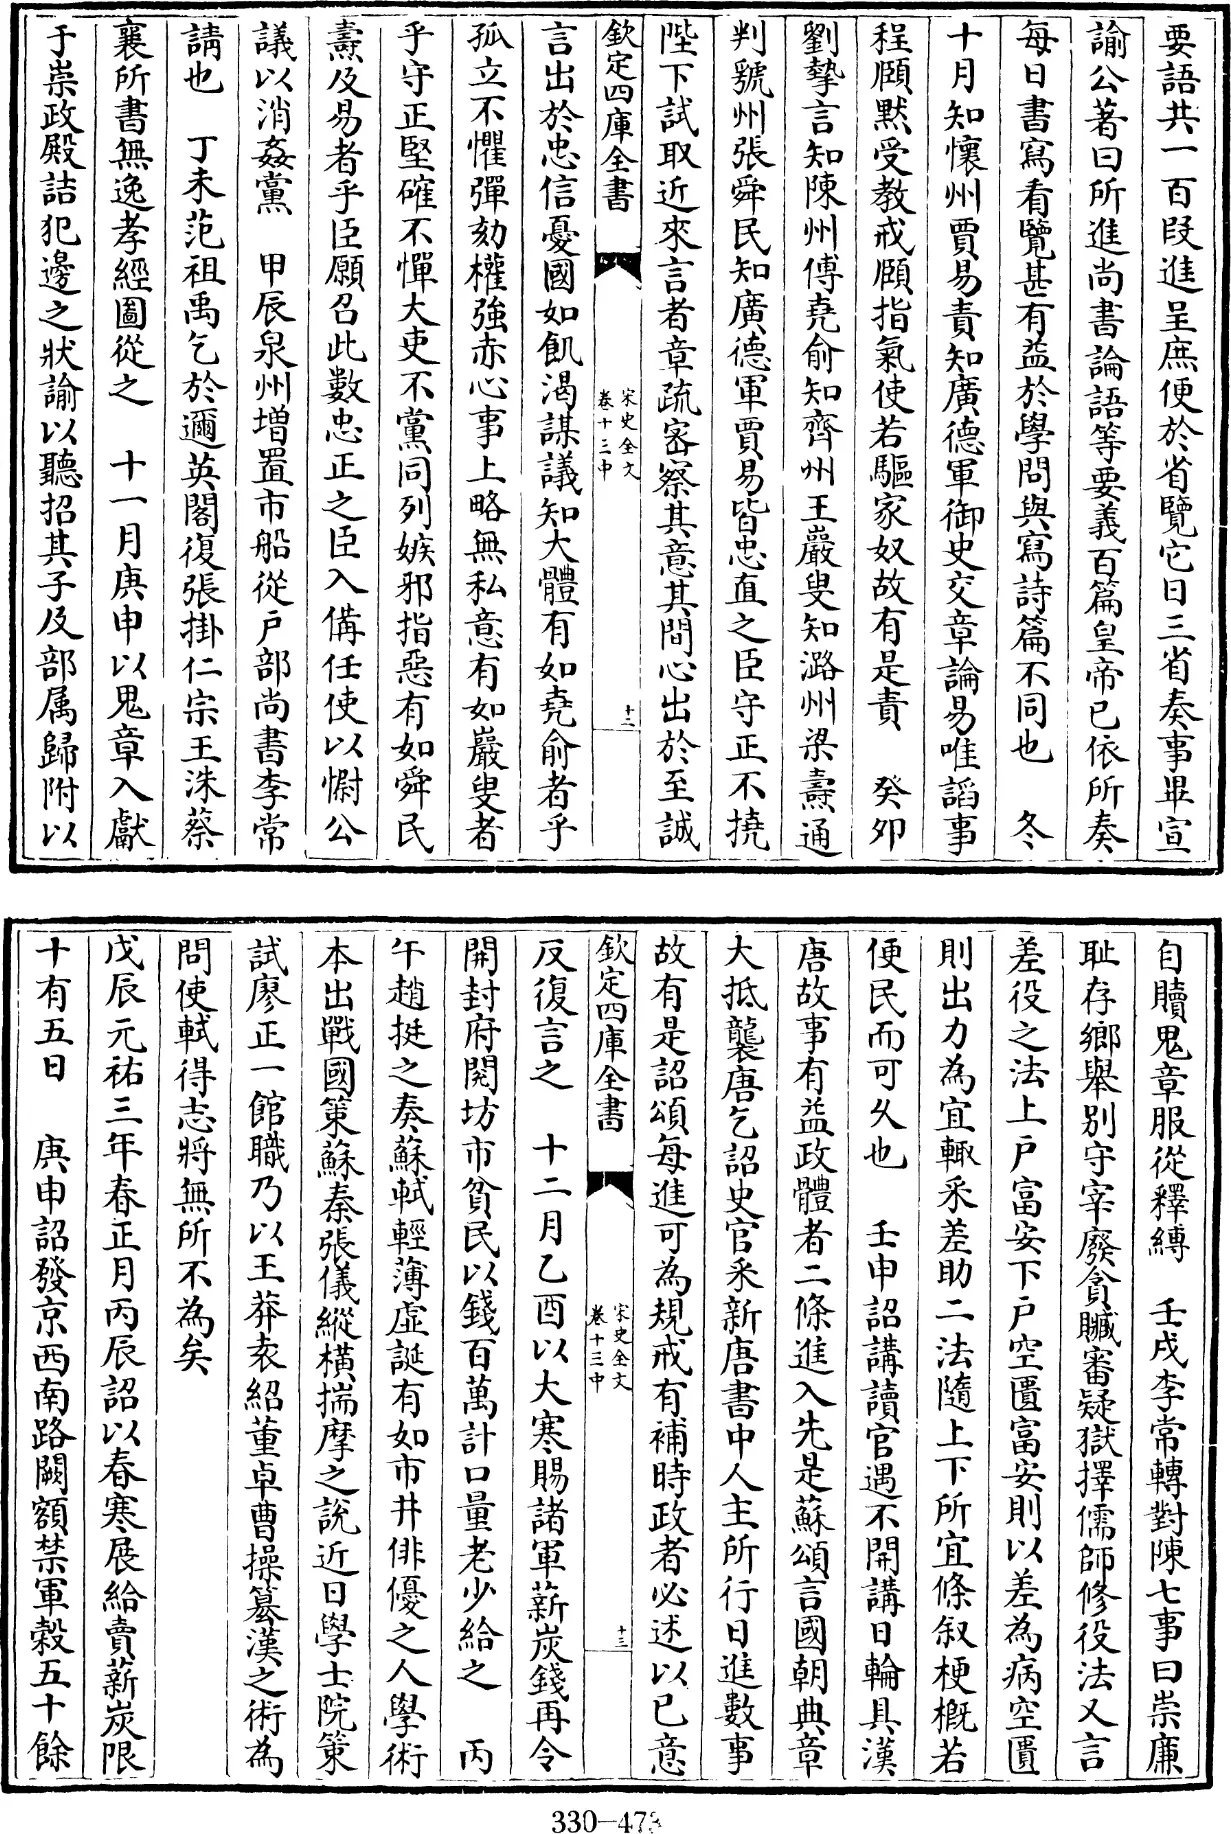 要語共一百段進呈庶便於省覽它日三省奏事畢宣
諭公著曰所進尚書論語等要義百篇皇帝已依所奏
每日書寫看覽甚有益於學問與寫詩篇不同也　冬
十月知懷州賈易責知廣德軍御史交章論易唯謟事
程頤黙受教戒頤指氣使若驅家奴故有是責　癸夘
劉摯言知陳州傅堯俞知齊州王巖叟知潞州梁燾通
判虢州張舜民知廣德軍賈易皆忠直之臣守正不撓
陛下試取近來言者章疏宻察其意其間心出於至誠
欽定四庫全書
宋史全文
卷十三中
十二
言出於忠信憂國如飢渴謀議知大體有如堯俞者乎
孤立不懼彈劾權強赤心事上略無私意有如巖叟者
乎守正堅確不憚大吏不黨同列嫉邪指惡有如舜民
燾及易者乎臣願召此數忠正之臣入備任使以慰公
議以消姦黨　甲辰泉州增置市船從户部尚書李常
請也　丁未范祖禹乞於邇英閣復張掛仁宗王洙蔡
襄所書無逸孝經圖從之　十一月庚申以鬼章入獻
于崇政殿詰犯邊之狀諭以聽招其子及部属歸附以
自贖鬼章服從釋縛　壬戌李常轉對陳七事曰崇廉
耻存鄉舉别守宰廢貪贓審疑獄擇儒師修役法又言
差役之法上户富安下户空匱富安則以差為病空匱
則出力為宜輙釆差助二法隨上下所宜條叙梗概若
便民而可久也　壬申詔講讀官遇不開講日輪具漢
唐故事有益政體者二條進入先是蘇頌言國朝典章
大抵襲唐乞詔史官釆新唐書中人主所行日進數事
故有是詔頌每進可為規戒有補時政者必述以已意
欽定四庫全書
宋史全文
卷十三中
十三
反復言之　十二月乙酉以大寒賜諸軍薪炭錢再令
開封府閱坊市貧民以錢百萬計口量老少給之　丙
午趙挺之奏蘇軾輕薄虛誕有如市井俳優之人學術
本出戰國策蘇秦張儀縱横揣摩之說近日學士院策
試廖正一館職乃以王莽袁紹董卓曹操簒漢之術為
問使軾得志將無所不為矣
戊辰元祐三年春正月丙辰詔以春寒展給賣薪炭限
十有五日　庚申詔發京西南路闕額禁軍穀五十餘